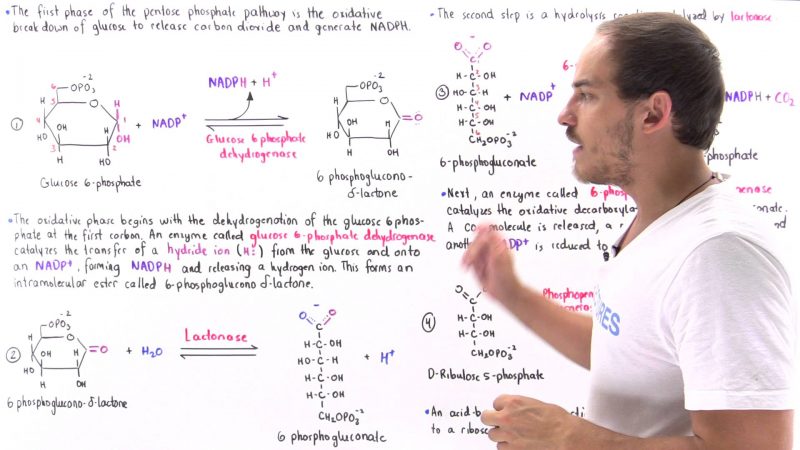 •The first phase of the pentose phosphate pathway is the oxidative
breakdown of glucose to release carbon dioxide and generate NADPH.
①
6
OPO₃⁻²
H
5
O
H
H
4
1
HO
OH
OH
3
2
H
OH
+ NADP⁺
NADPH + H⁺
Glucose 6 phosphate
dehydrogenase
OPO₃⁻²
H
O
H
OH
HO
=O
H
OH
Glucose 6-phosphate
6 phosphoglucono-
δ-lactone
•The oxidative phase begins with the dehydrogenation of the glucose 6phos-
phate at the first carbon. An enzyme called glucose 6-phosphate dehydrogenase
catalyzes the transfer of a hydride ion (H:⁻) from the glucose and onto
an NADP⁺, forming NADPH and releasing a hydrogen ion. This forms an
intramolecular ester called 6-phosphoglucono δ-lactone.
②
OPO₃⁻²
H
O
H
OH
H
HO
=O
H
OH
+ H₂O
Lactonase
O O⁻
H-C-OH
HO-C-H
H-C-OH
H-C-OH
CH₂OPO₃⁻²
+ H⁺
6 phosphoglucono-δ-lactone
6 phosphogluconate
•The second step is a hydrolysis by lactonase
③
O O⁻
1
H-C-OH
2
HO-C-H
3
H-C-OH
4
H-C-OH
5
6
CH₂OPO₃⁻²
+ NADP⁺
6-
NADPH + CO₂
6-phosphogluconate
phosphate
•Next, an enzyme called 6-phosp
catalyzes the oxidative decarboxyla
A CO molecule is released, a
anoth DP⁺ is reduced to
④
H-C-OH
H-C-OH
CH₂OPO₃⁻²
Phosphopen
D-Ribulose 5-phosphate
•An acid-b
to a ribos
URES